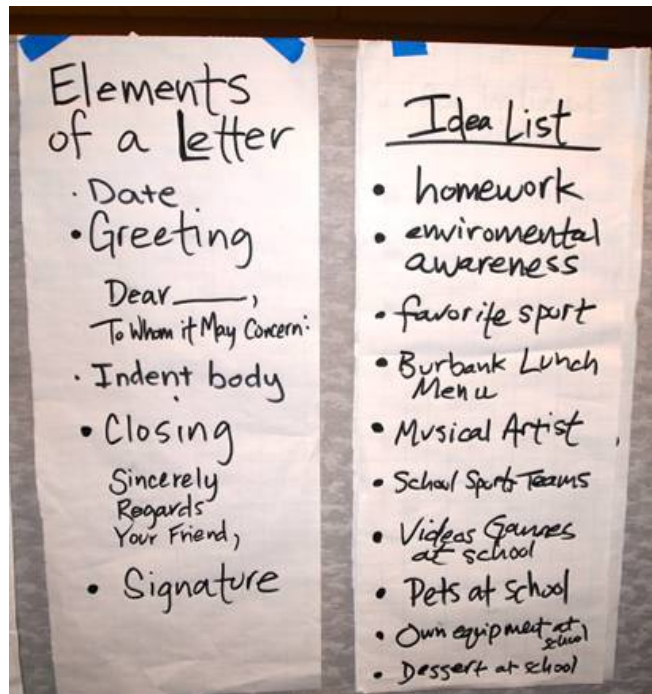 Elements
of a Letter
· Date
• Greeting
Dear ____,
To Whom it May Concern:
· Indent body
• Closing
Sincerely
Regards
Your Friend,
• Signature
Idea List
• homework
• enviromental
awareness
• favorite sport
• Burbank Lunch
Menu
• Musical Artist
• School Sports Teams
• Videos Games
at school
• Pets at school
• Own equipment at
school
• Dessert at school